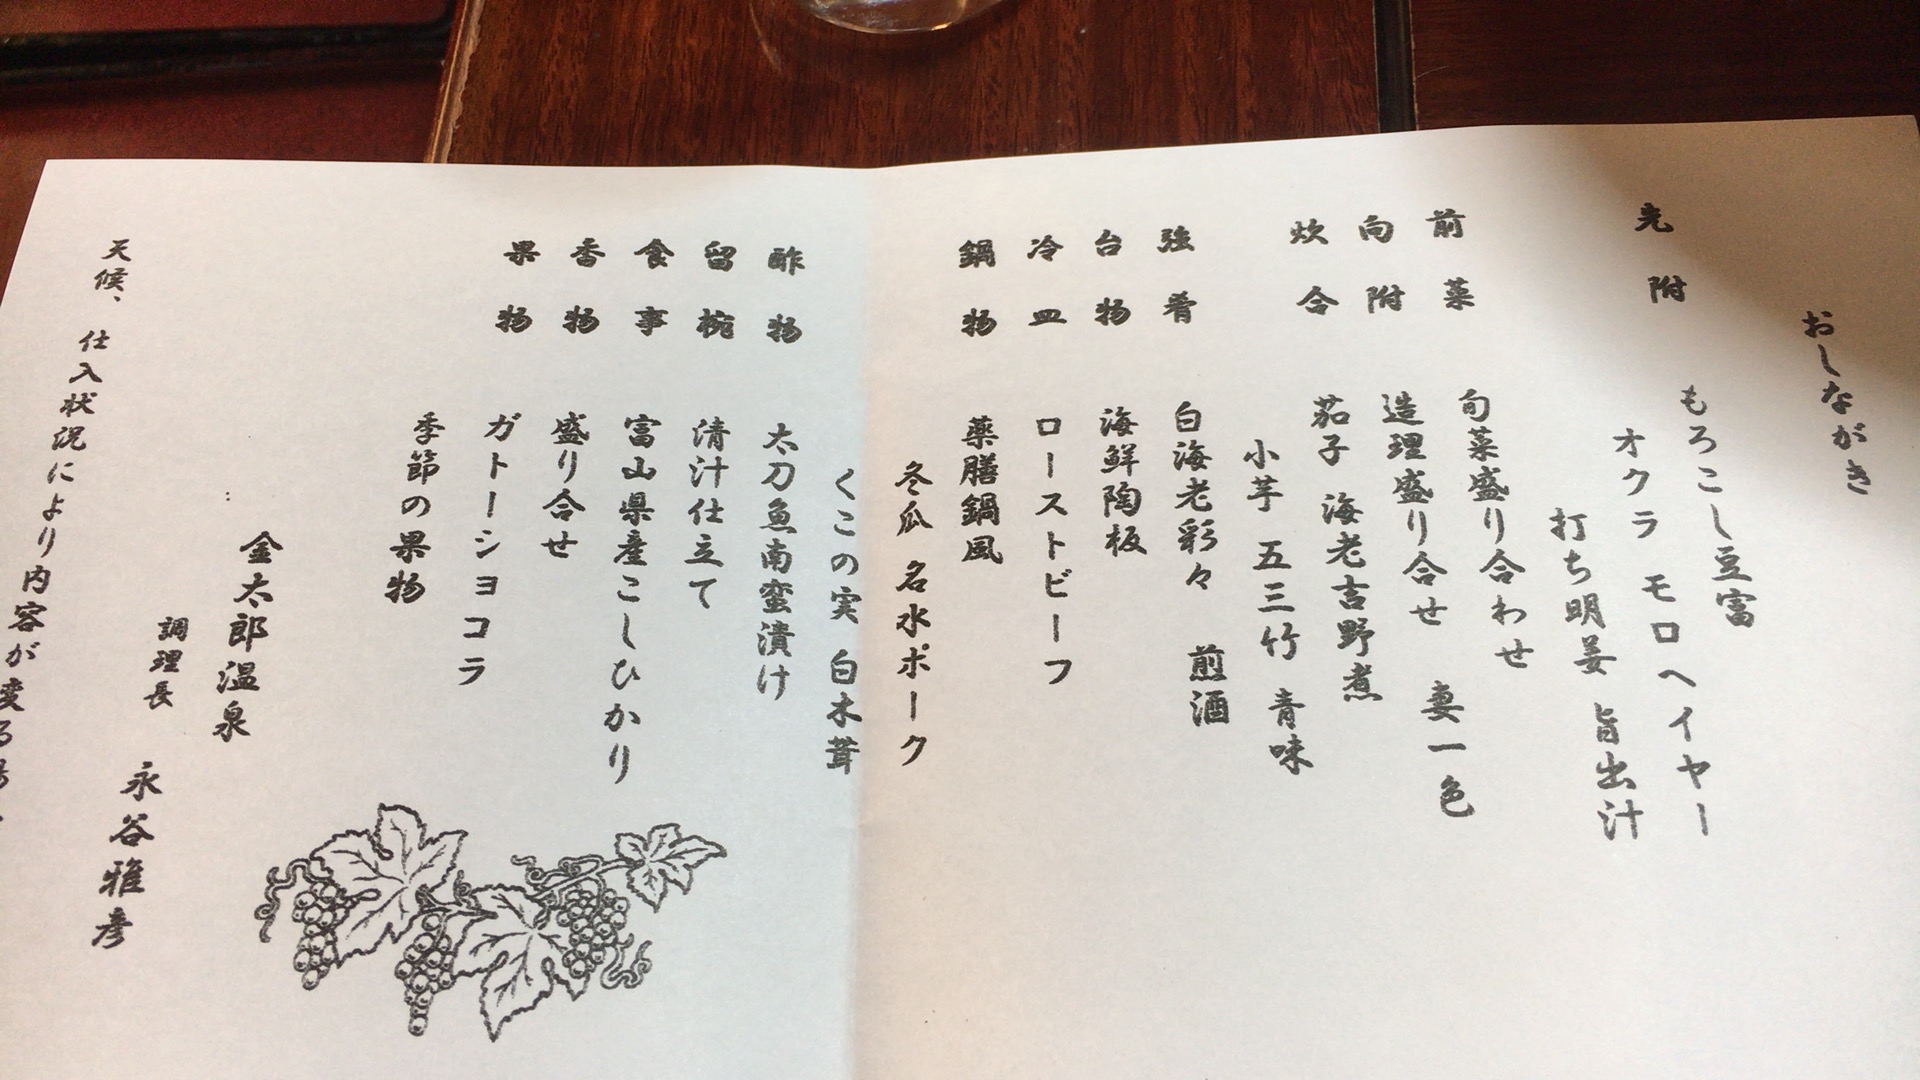 おしながき
先附 もろこし豆富
オクラ モロヘイヤー
打ち明姜 旨出汁
前菜 旬菜盛り合わせ
向附 造理盛り合せ 妻一色
炊合 茄子 海老吉野煮
小芋 五三竹 青味
強肴 白海老彩々 煎酒
台物 海鮮陶板
冷皿 ローストビーフ
鍋物 薬膳鍋風
冬瓜 名水ポーク
くこの実 白木茸
酢物 太刀魚南蛮漬け
留椀 清汁仕立て
食事 富山県産こしひかり
香物 盛り合せ
果物 ガトーショコラ
季節の果物
金太郎温泉
調理長 永谷雅彦
天候、仕入状況により内容が変る